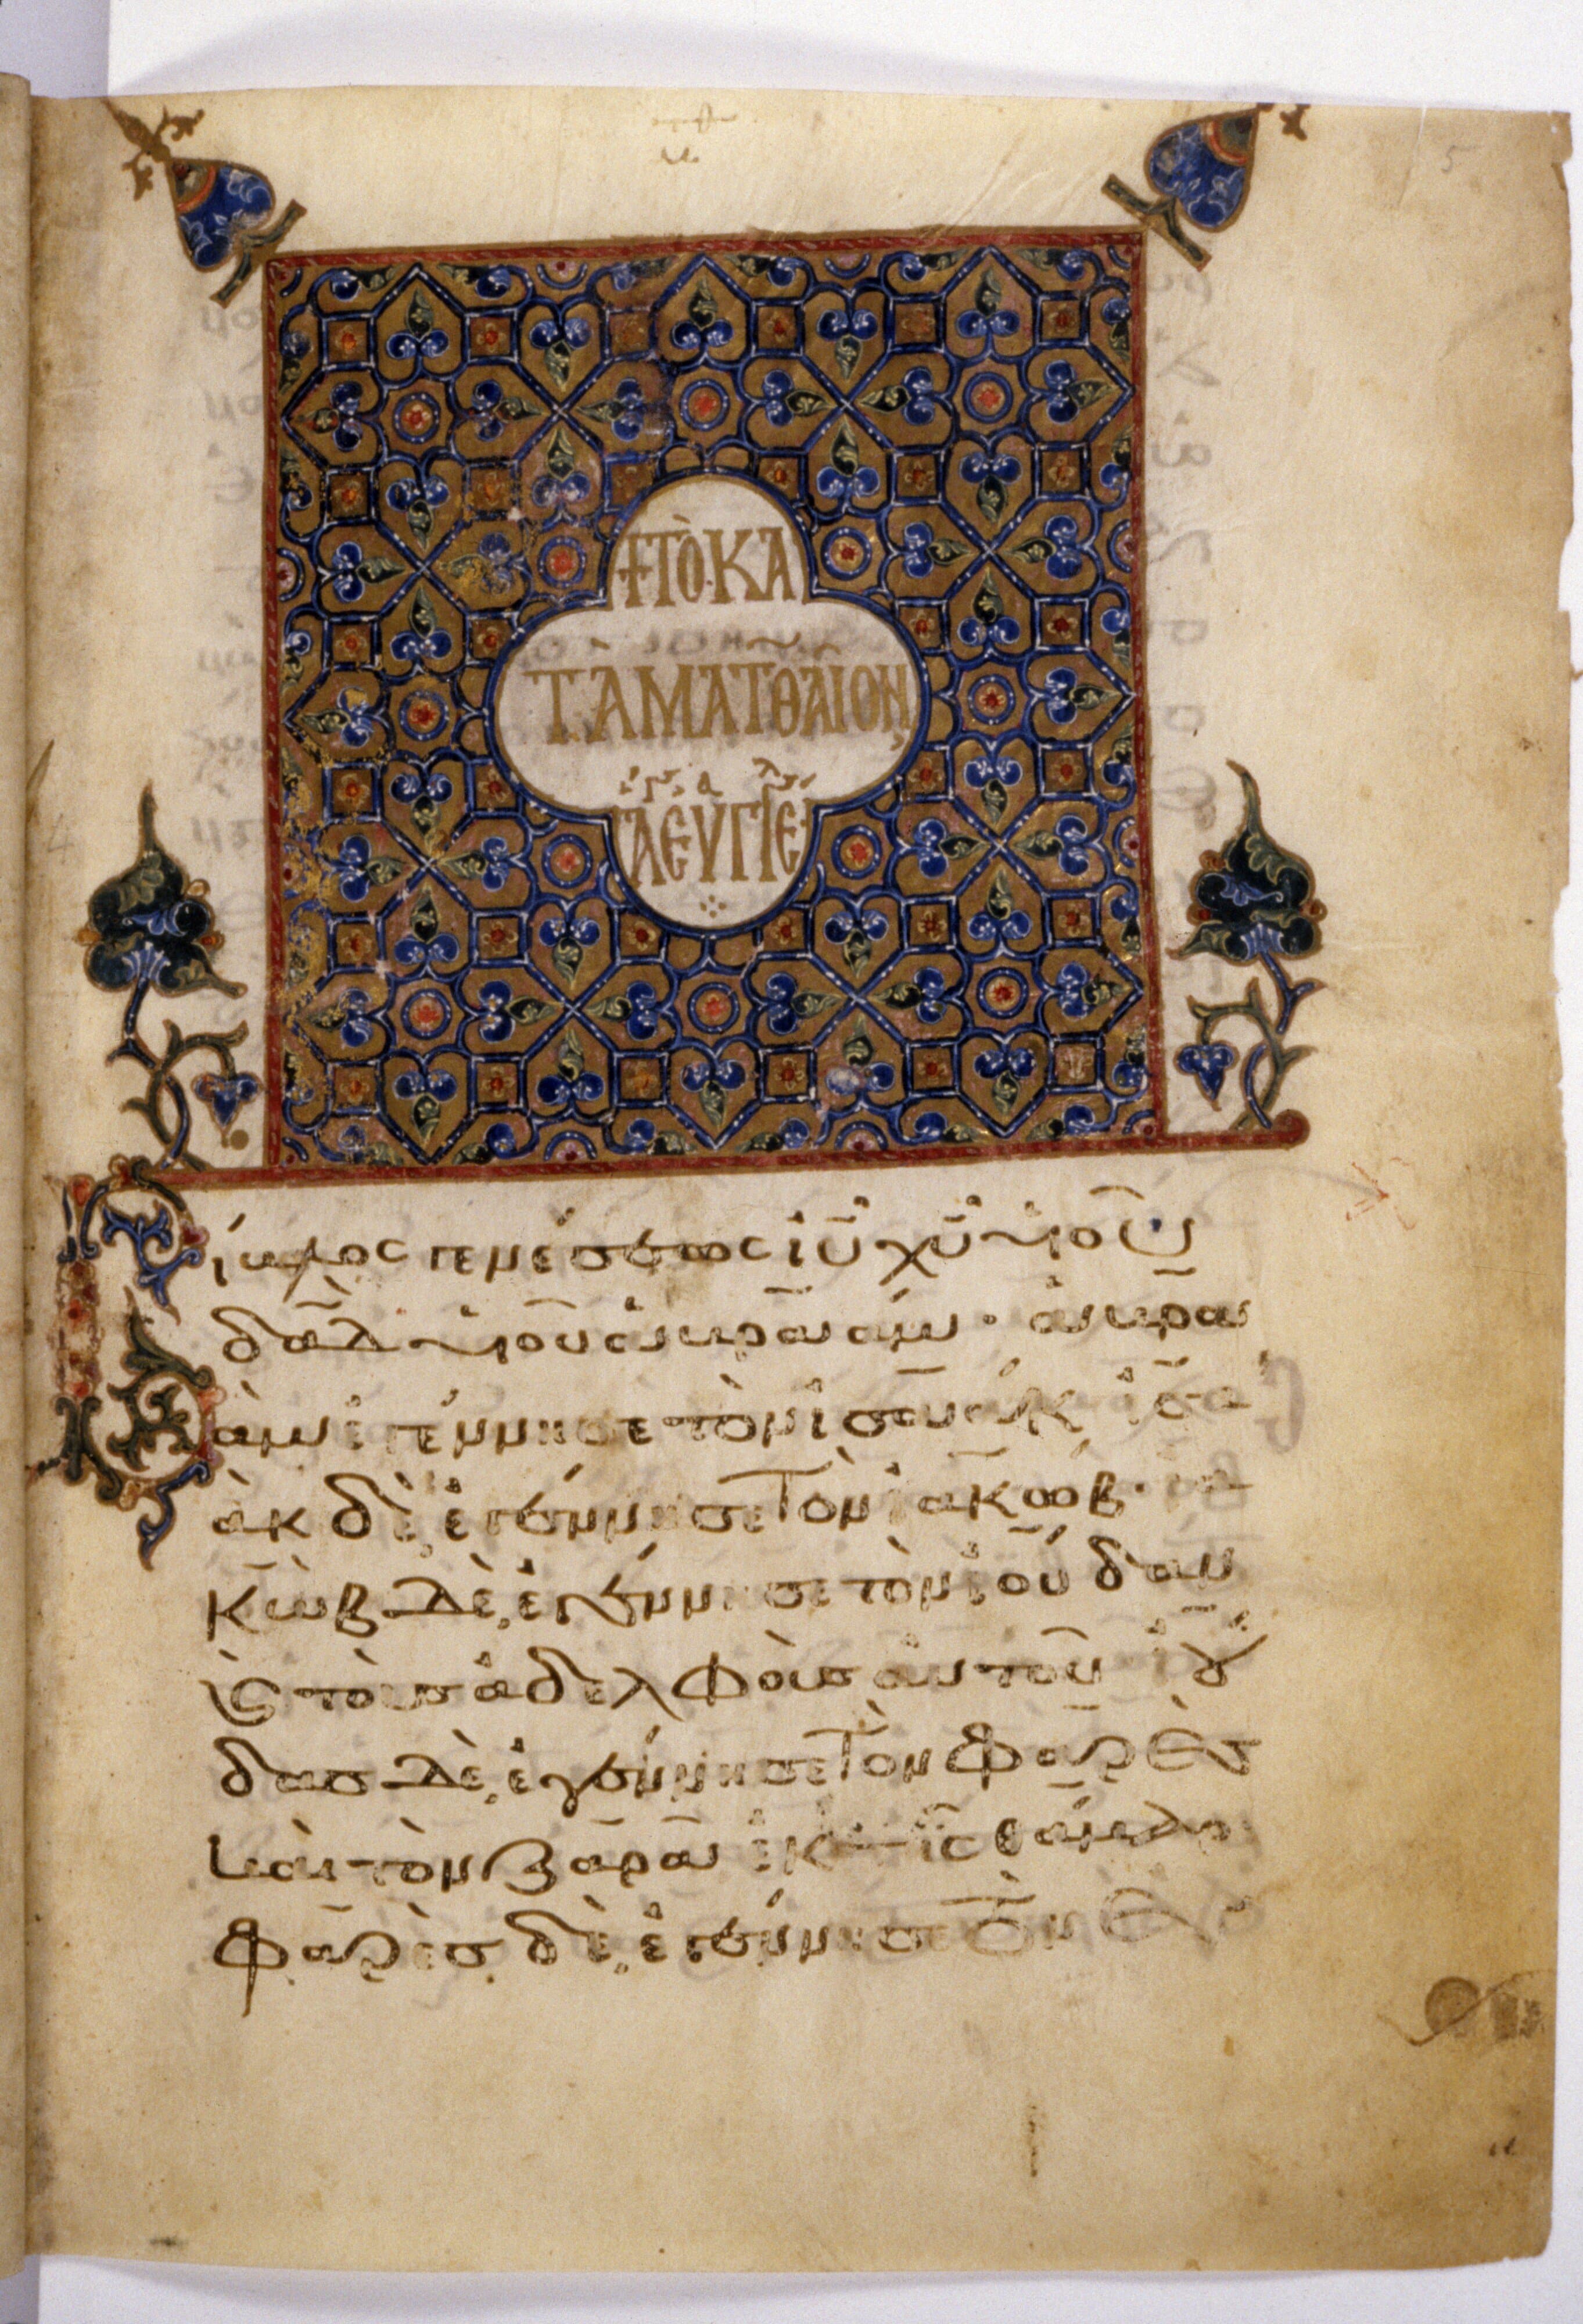 5
+ΤΟ ΚΑ
ΤᾺ ΜΑΤΘΑΙΟΝ
ΑΕΥΓΓΕ
Βίβλος γενέσεως ἰῡ χῡ υἱοῦ
δᾱδ υἱοῦ ἀβραάμ· ἀβρα
ὰμ ἐγέννησε τὸν ἰσαάκ ἰσα
ὰκ δὲ ἐγέννησε τὸν ἰακώβ· ἰα
κὼβ δὲ ἐγέννησε τὸν ἰούδαν
καὶ τοὺς ἀδελφοὺς αὐτοῦ ἰού
δας δὲ ἐγέννησε τὸν φαρὲς
καὶ τὸν ζαρὰ ἐκ τῆς θάμαρ
φαρὲς δὲ ἐγέννησε τὸν